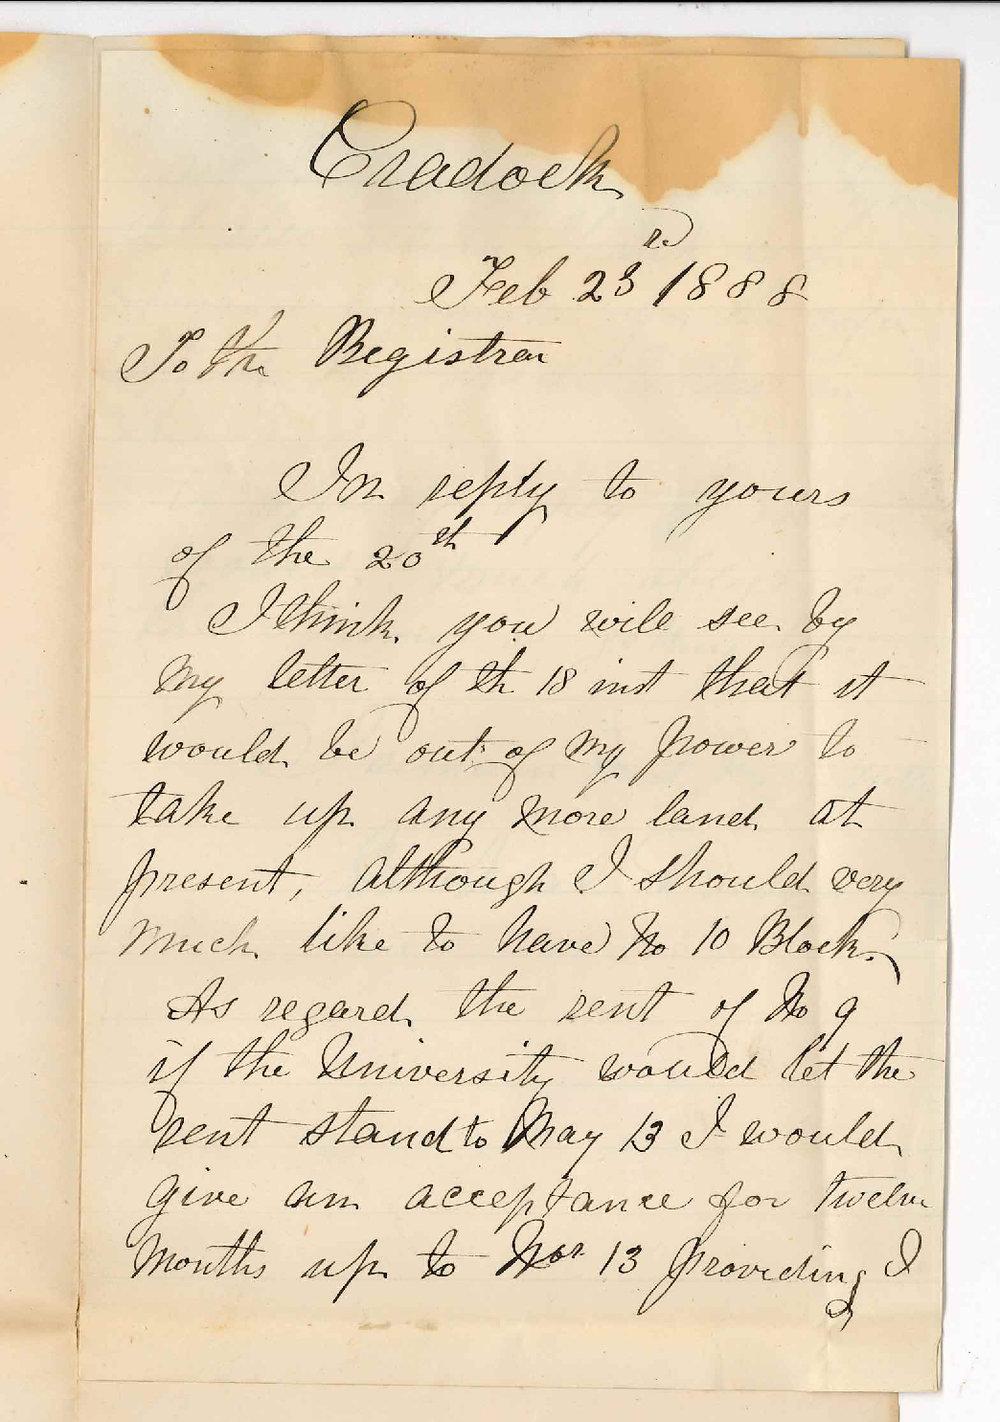 Cradock
Feb 23rd 1888
To the Registrar
In reply to yours
of the 20th
I think you will see by
my letter of th 18 inst that it
would be out of my power to
take up any more land at
present, although I should very
much like to have No 10 Block.
As regard the rent of No 9
if the University would let the
rent stand to May 13 I would
give an acceptance for twelve
months up to Nov 13 providing I